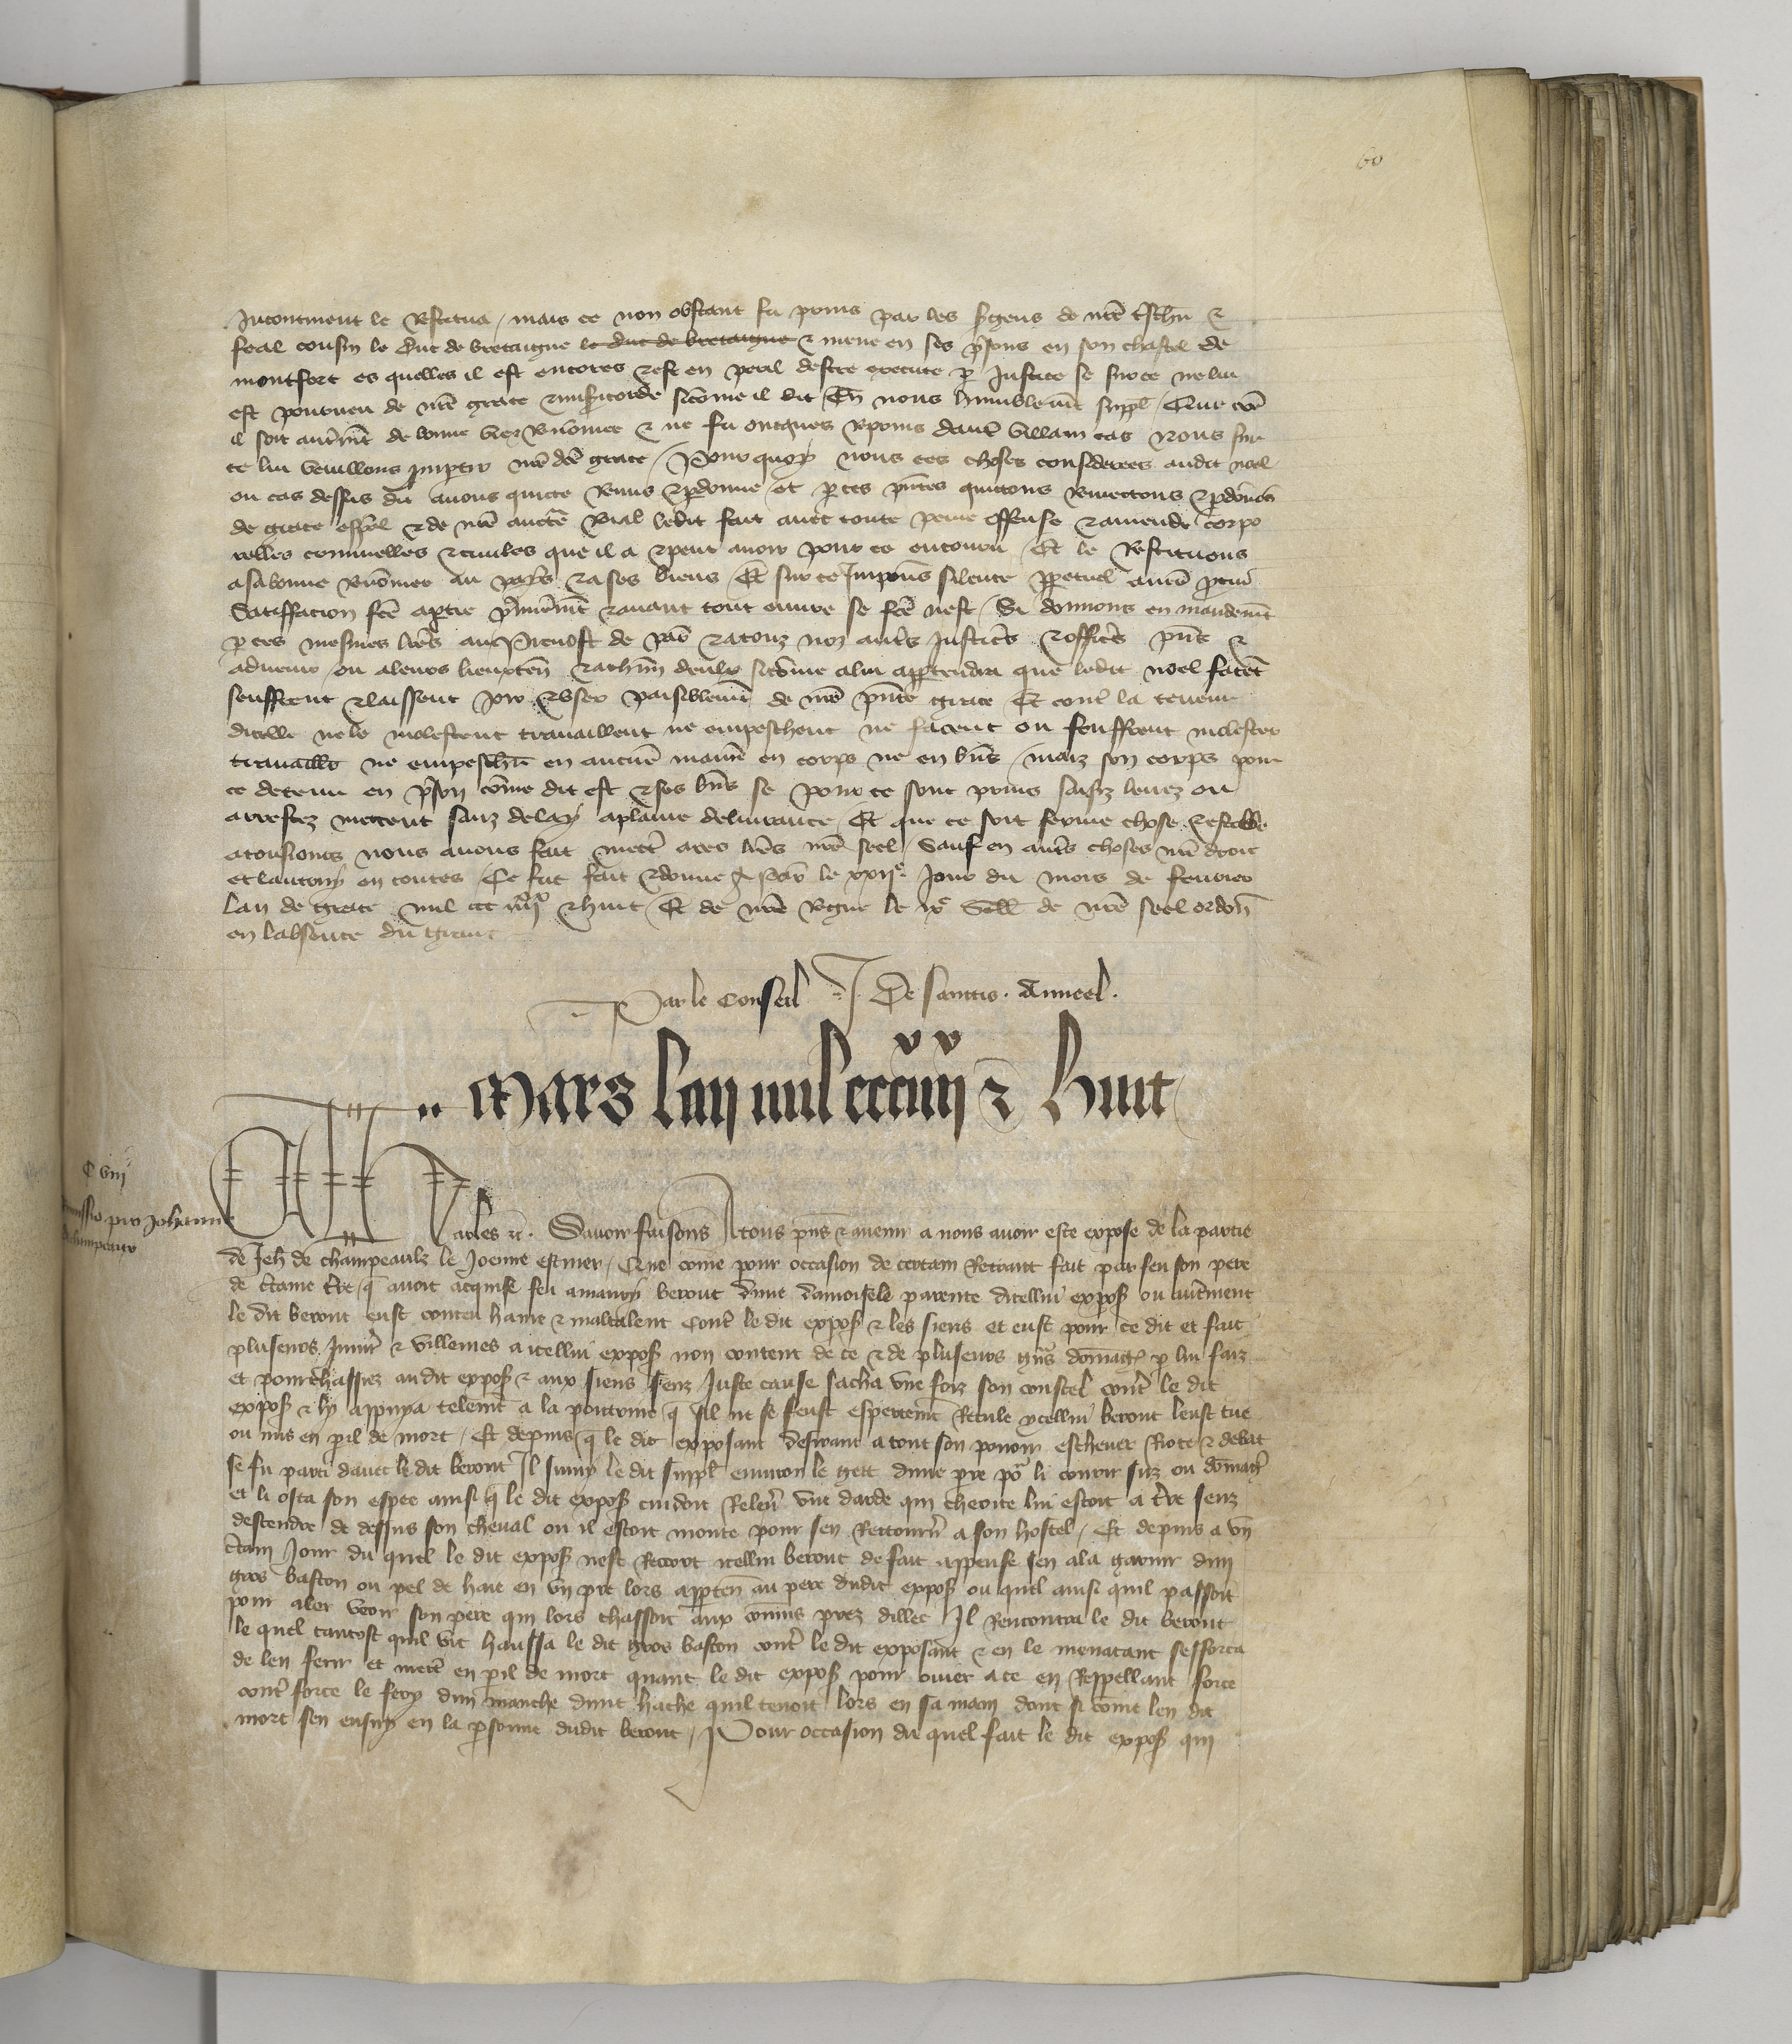 60
Incontinent le Restitua / mais ce non obstant fu prins par les sergens de nre treschier &
feal cousin le Duc de bretaigne le duc de bretaigne & mene en ses prisons en son chastel de
montfort es quelles il est encores & est en peril destre execute par Justice se sur ce ne lui
est pourveu de nre grace & misericorde sicomme il dit / En nous humblement suppl / Que come
il soit autrement de bonne vie & Renommee & ne fu oncques Reprins dautre villain cas Nous sur
ce lui veuillons impartir nre dce grace / Pour quoy nous ces choses considerees audit noel
ou cas dessus dit avons quicte Remis & pardonne / et par ces pntes quictons Remectons & pardonnons
de grace espal & de nre aucte Roial ledit fait avec toute peine offense & amende corpo
relles criminelles & civiles que il a & peut avoir pour ce encouru / Et le Restituons
a sa bonne Renommee au pays & a ses biens / Et sur ce Imposons silence perpetuel a nre procur
Satisfacion fce a partie premierement & avant tout euvre se fce nest / Si donnons en mandement
par ces mesmes lres au Prevost de paris & a touz noz autres Justiciers & officiers pns &
advenir / ou a leurs lieuxten & a chun deulx sicomme a lui appartendra que ledit noel facent
seuffrent & laissent Joir & user paisiblement de nre pnte grace Et contre la teneur
dicelle ne le molestent travaillent ne empeschent ne facent ou seuffrent molester
travaillier ne empeschier en aucune maniere en corps ne en biens / maiz son corps pour
ce detenu en prison come dit est & ses biens se pour ce sont prins saisiz levez ou
arrestez mettent sanz delay a plaine delivrance / Et que ce soit ferme chose & estable
a tousiours nous avons fait mettre a ces lres nre seel / Sauf en autres choses nre droit
et lautruy en toutes / Ce fut fait & donne a paris le xxije Jour du mois de fevrier
Lan de grace mil ccc iiijxx & huit / Et de nre Regne le ixe Seelle de nre seel ordonne
en labsence du grant
Par le Conseil J. De sanctis . Anneel .
Mars lan mil ccciiijxx & Huit
C viij
Remissio pro Johanne
de champeaux
Charles &c. Savoir faisons A tous pns & avenir a nous avoir este expose de la partie
de Jeh de champeaulz le Joenne escuier / Que come pour occasion de certain Retrait fait par feu son pere
de ctaine tre q avoit acquise feu amaury beront dune damoisele parente dicellui expos ou autrement
le dit beront eust conceu haine & maltalent contre le dit expos & les siens et eust pour ce dit et fait
pluseurs Iniures & villenies a icellui expos non content de ce & de pluseurs gns domages p lui faiz
et pourchassiez au dit expos & aux siens senz Juste cause sacha une foiz son coustel contre le dit
expos & ly appuya telement a la poitrine q sil ne se feust espertement Recule ycellui beront leust tue
ou mis en peril de mort / Et depuis q le dit exposant desirant a tout son pouoir eschever Riote & debat
se fu parti davec le dit beront Il suiuy le dit suppl environ le gett dune pierre pour li courir suz ou domagier
et li osta son espee ainsi q le dit expos cuidoit Relever une darde qui cheoite lui estoit a terre senz
descendre de dessus son cheval ou il estoit monte pour sen Retourner a son hostel / Et depuis a un
certain Jour du quel le dit expos nest Recort icellui beront de fait appense sen ala garnir dun
gros baston ou pel de haie en un pre lors apparten au pere dudit expos ou quel ainsi quil passoit
pour aler veoir son pere qui lors chassoit aux prez dillec Il Rencontra le dit beront
le quel tantost quil vit haussa le dit gros baston contre le dit exposant & en le menacant sefforca
de len ferir et mettre en peril de mort quant le dit expos pour ovier a ce en Repellant force
contre force le fery dun manche dune hache quil tenoit lors en sa main dont si come len dit
mort sen ensuy en la personne dudit beront / Pour occasion du quel fait le dit expos qui